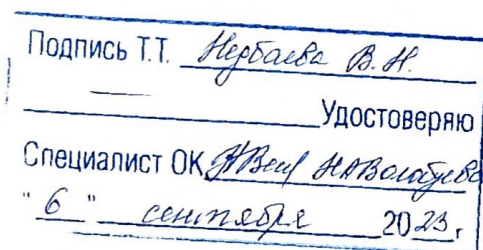 Подпись Т.Т. Недбаева В. Н.
Удостоверяю
Специалист ОК Н.А.Волобуева
" 6 " сентября 2023 г.